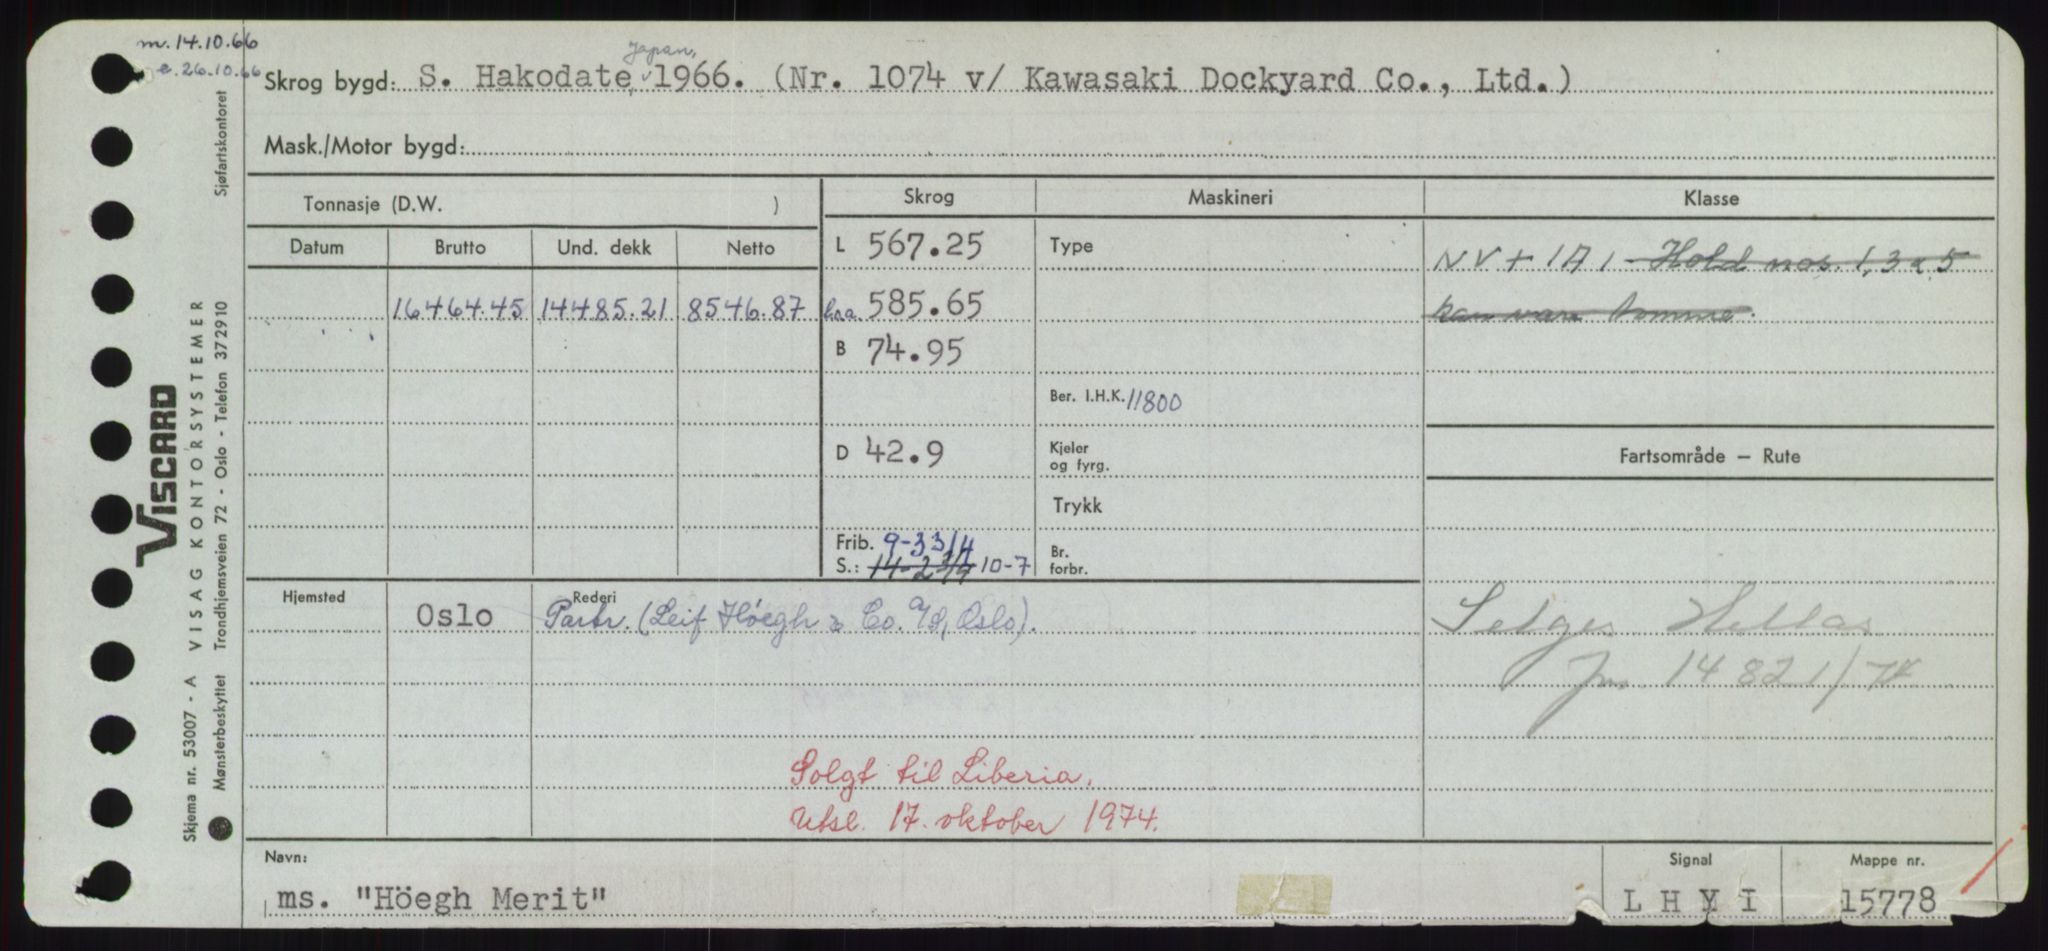 m. 14.10.66
e. 26.10.66
Japan,
Skrog bygd: S. Hakodate, 1966. (Nr. 1074 v/ Kawasaki Dockyard Co., Ltd.)
Mask./Motor bygd:
Tonnasje (D.W. )
Skrog
Maskineri
Klasse
Datum Brutto Und. dekk Netto
L 567.25
Type
NV + 1A1 - Hold nos. 1, 3 & 5
16464.45 14485.21 8546.87
h.a. 585.65
kan være tomme.
B 74.95
Ber. I.H.K. 11800
D 42.9
Kjeler
og fyrg.
Fartsområde – Rute
Trykk
Frib. 9-3 3/4
S.: 14-2 3/4 10-7
Br.
forbr.
Hjemsted Oslo
Rederi
Partr. (Leif Höegh & Co. A/S, Oslo).
Selges Hellas
Jnr. 14821/74
Solgt til Liberia.
Utsl. 17. oktober 1974.
Navn:
ms. "Höegh Merit"
Signal
Mappe nr.
15778
VISCARD
VISAG KONTORSYSTEMER
Skjema nr. 53007 - A
Mønsterbeskyttet Trondhjemsveien 72 - Oslo - Telefon 372910 Sjøfartskontoret